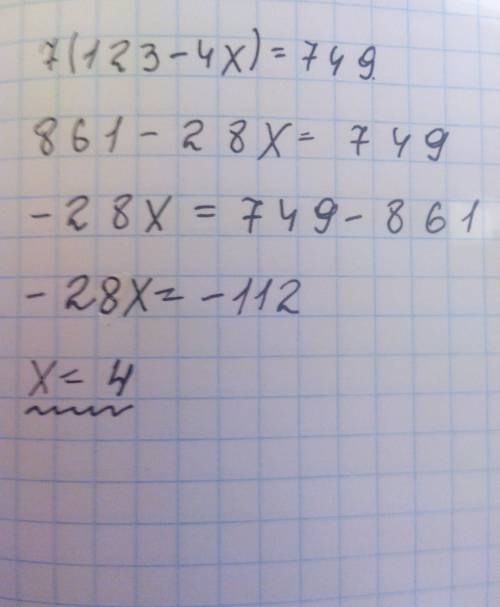 7(123-4x)=749.
861-28x=749
-28x=749-861
-28x=-112
x=4